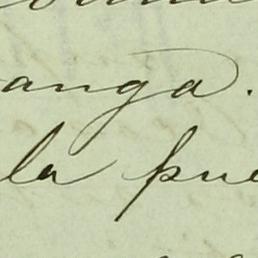 anga.
la pue